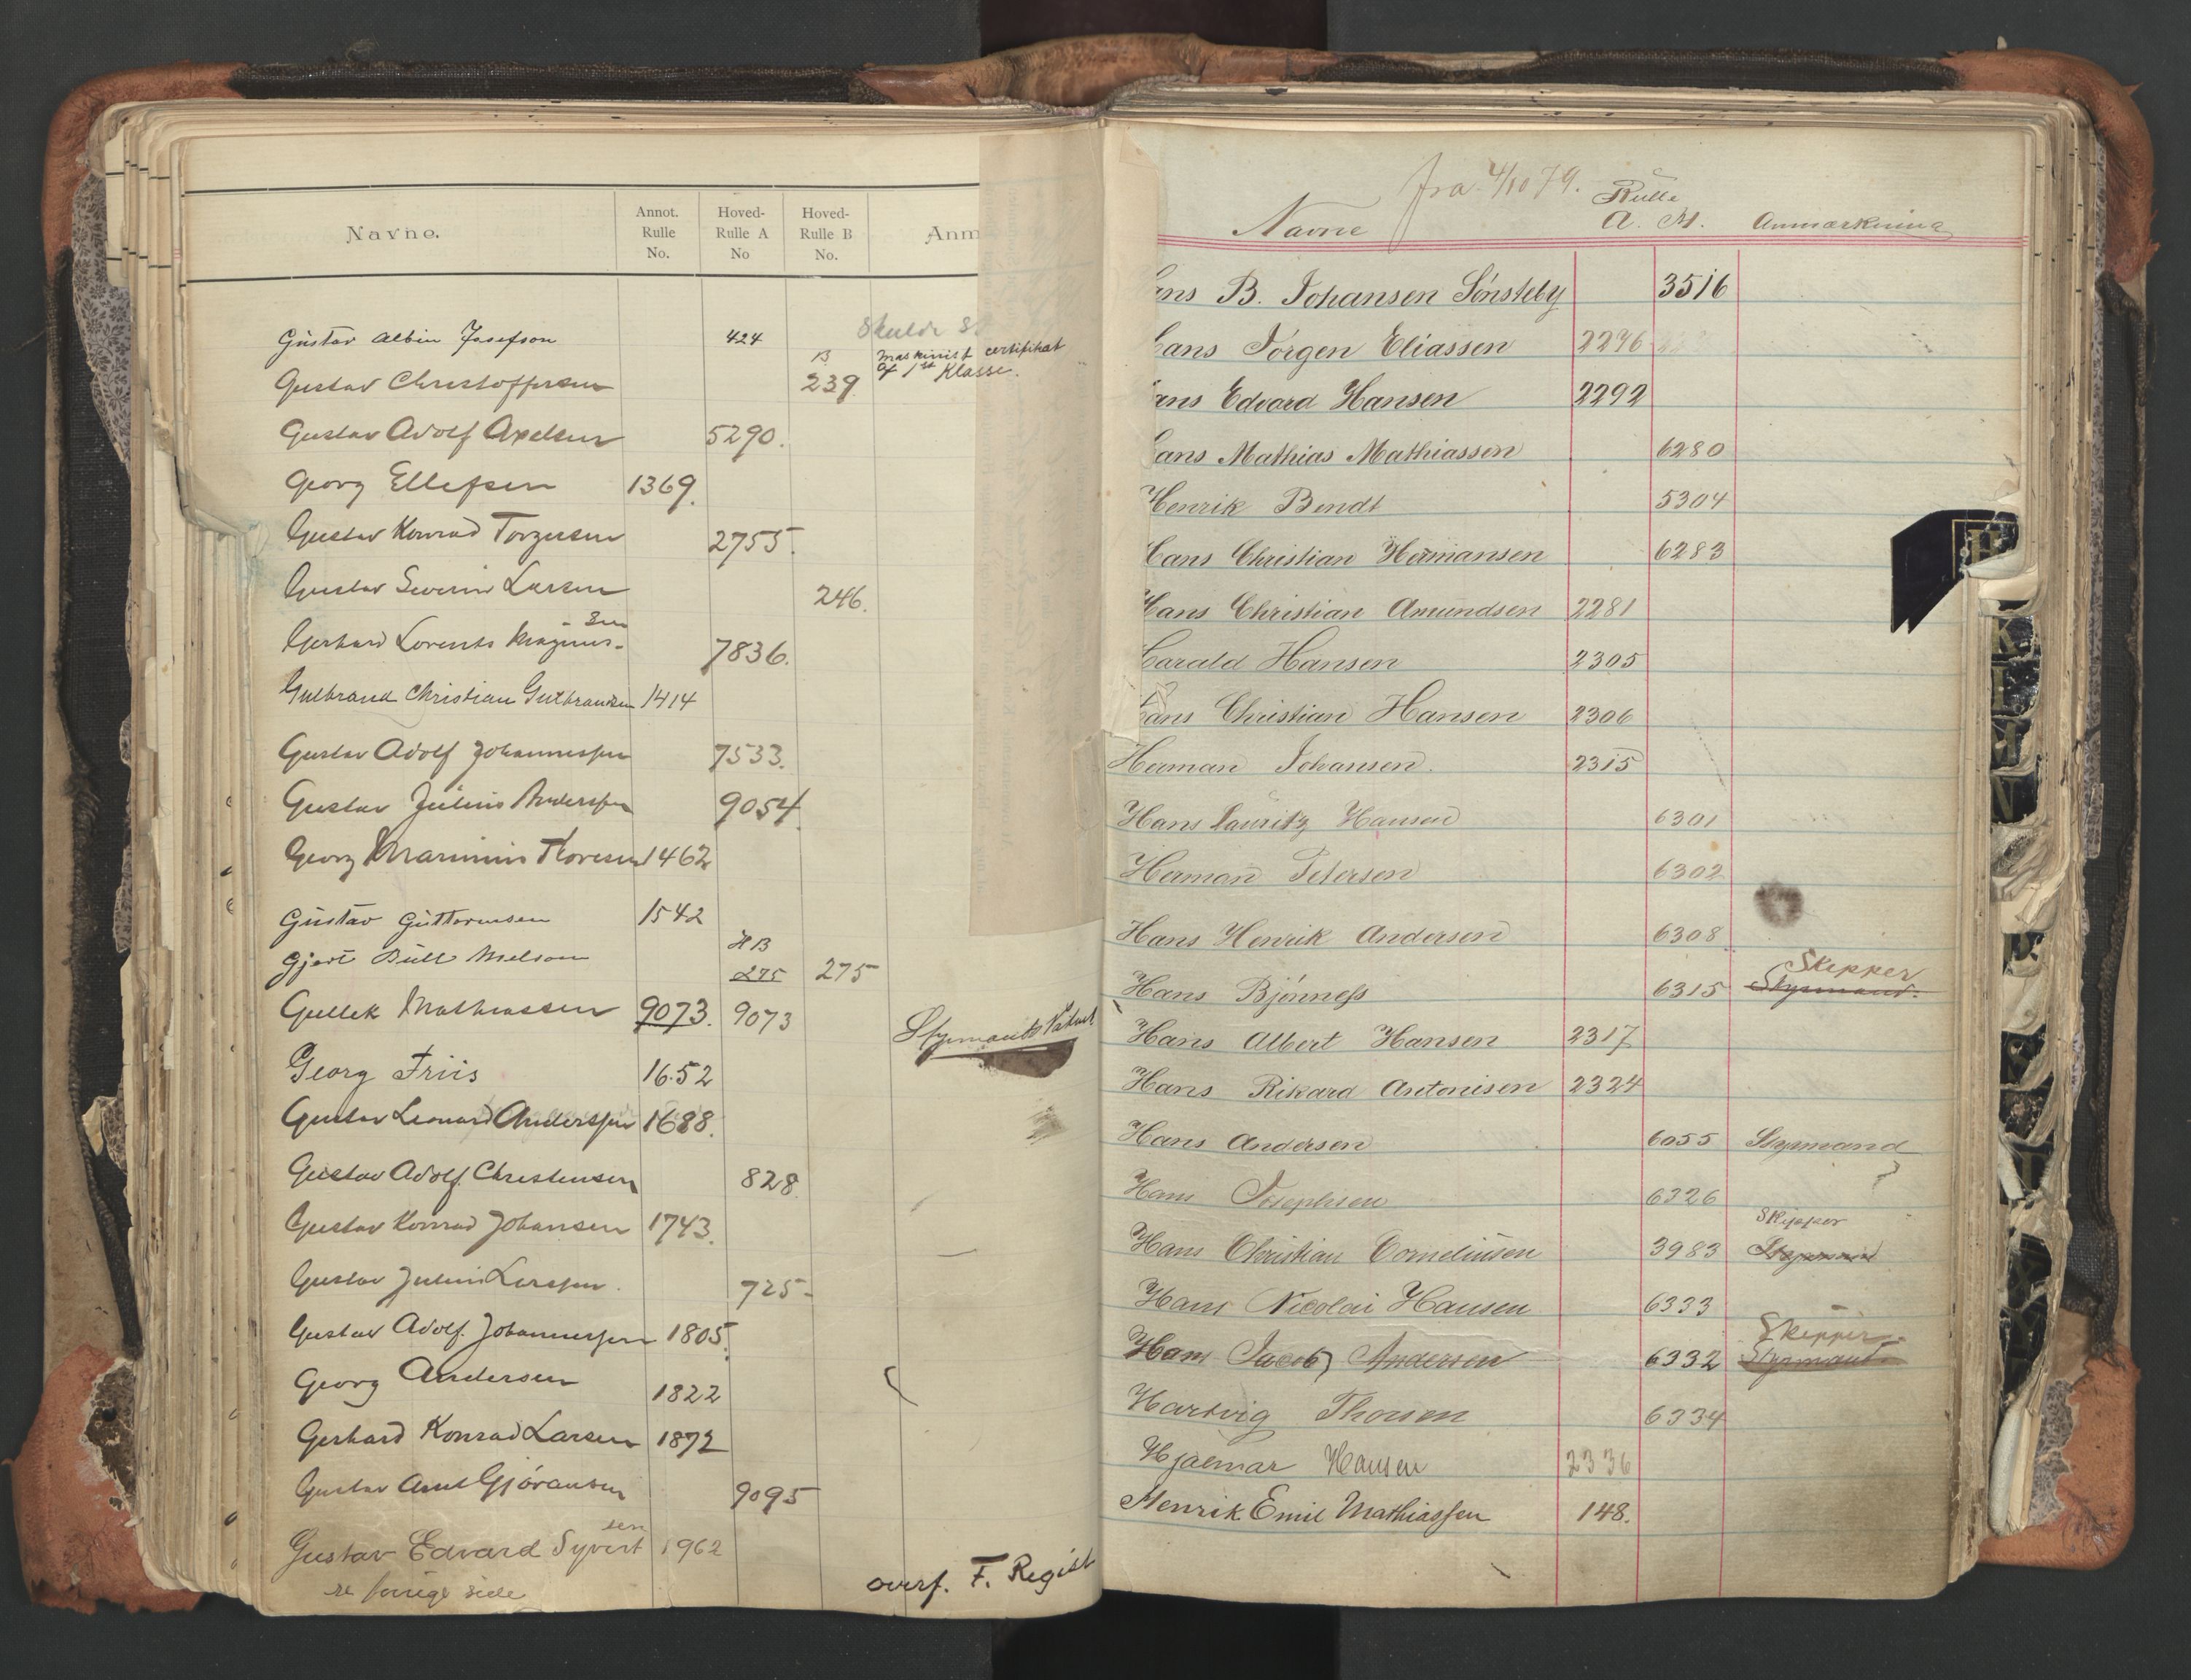 Navne.
Annot. Rulle No.
Hoved- Rulle A No
Hoved- Rulle B No.
Anm
Skulde
Gustav Albin Josefson 424
Maskinist certifikat
Gustav Christoffersen B 239. af 1st Klasse.
Gustav Adolf Axelsen 5290.
Georg Ellefsen 1369.
Gustav Konrad Torgersen 2755.
Gustav Severin Larsen 246.
Gerhard Lorents Magnus- sen 7836.
Gulbrand Christian Gulbrandsen 1414
Gustav Adolf Johannessen 7533.
Gustav Julius Anderssen 9054
Georg Maximius Thoresen 1462
Gustav Guttormsen 1542
HB
Gjert Bull Melsom 275 275
Gullek Mathiassen 9073. 9073 Styrmands Patent
Georg Friis 1652
Gustav Leonard Anderssen 1688.
Gustav Adolf Christensen 828
Gustav Konrad Johansen 1743.
Gustav Julius Larssen. 725-
Gustav Adolf. Johannessen 1805.
Georg Andersen 1822
Gerhard Konrad Larsen 1872
Gustav Arnt Gjöransen 9095
Gustav Edvard Syvert sen 1962
se forrige side
overf. F. Regist
fra 4/10 79.
Navne Rulle A. H. Anmærkning
ans B. Johansen Sönsteby 3516
Hans Jörgen Eliassen 2296
ans Edvard Hansen 2292
Hans Mathias Mathiassen 6280
Henrik Bendt 5304
Hans Christian Hermansen 6283
Hans Christian Amundsen 2281
Harald Hansen 2305
Hans Christian Hansen 2306
Herman Johansen. 2315
Hans Lauritz Hansen 6301
Herman Petersen 6302
Hans Henrik Andersen 6308
Skipper
Hans Bjönness 6315 Styrmand.
Hans Albert Hansen 2317
Hans Rikard Antonisen 2324
Hans Andersen 6055 Styrmand
Hans Josephsen 6326
Skipper
Hans Christian Corneliusen 3983 Styrmand
Hans Nicolai Hansen 6333
Skipper.
Hans Jacob Andersen 6332 Styrmand.
Hartvig Thorsen 6334
Hjalmar Hansen 2336
Henrik Emil Mathiassen 148.
H
K